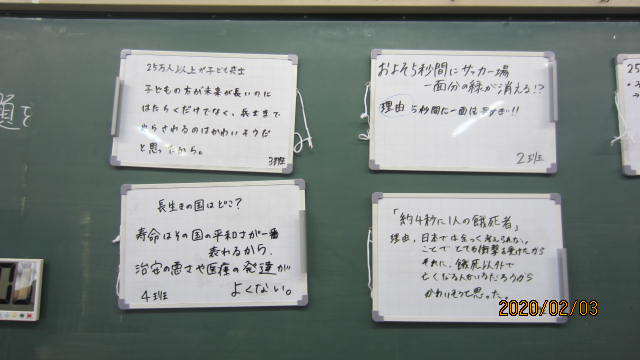 題を
25万人以上が子ども兵士
子どもの方が未来が長いのに
はたらくだけでなく、兵士まで
やらされるのはかわいそうだ
と思ったから。
3班
およそ5秒間にサッカー場
一面分の緑が消える!?
理由 5秒間に一面は早すぎ!!
2班
長生きの国はどこ?
寿命はその国の平和さが一番
表れるから、
治安の悪さや医療の発達が
よくない。
4班
「約4秒に1人の餓死者」
理由、日本では全く考えられない
ことでとても衝撃を受けたから
それに、餓死以外で
亡くなる人がいるだろうから
かわいそうと思った。
2020/02/03